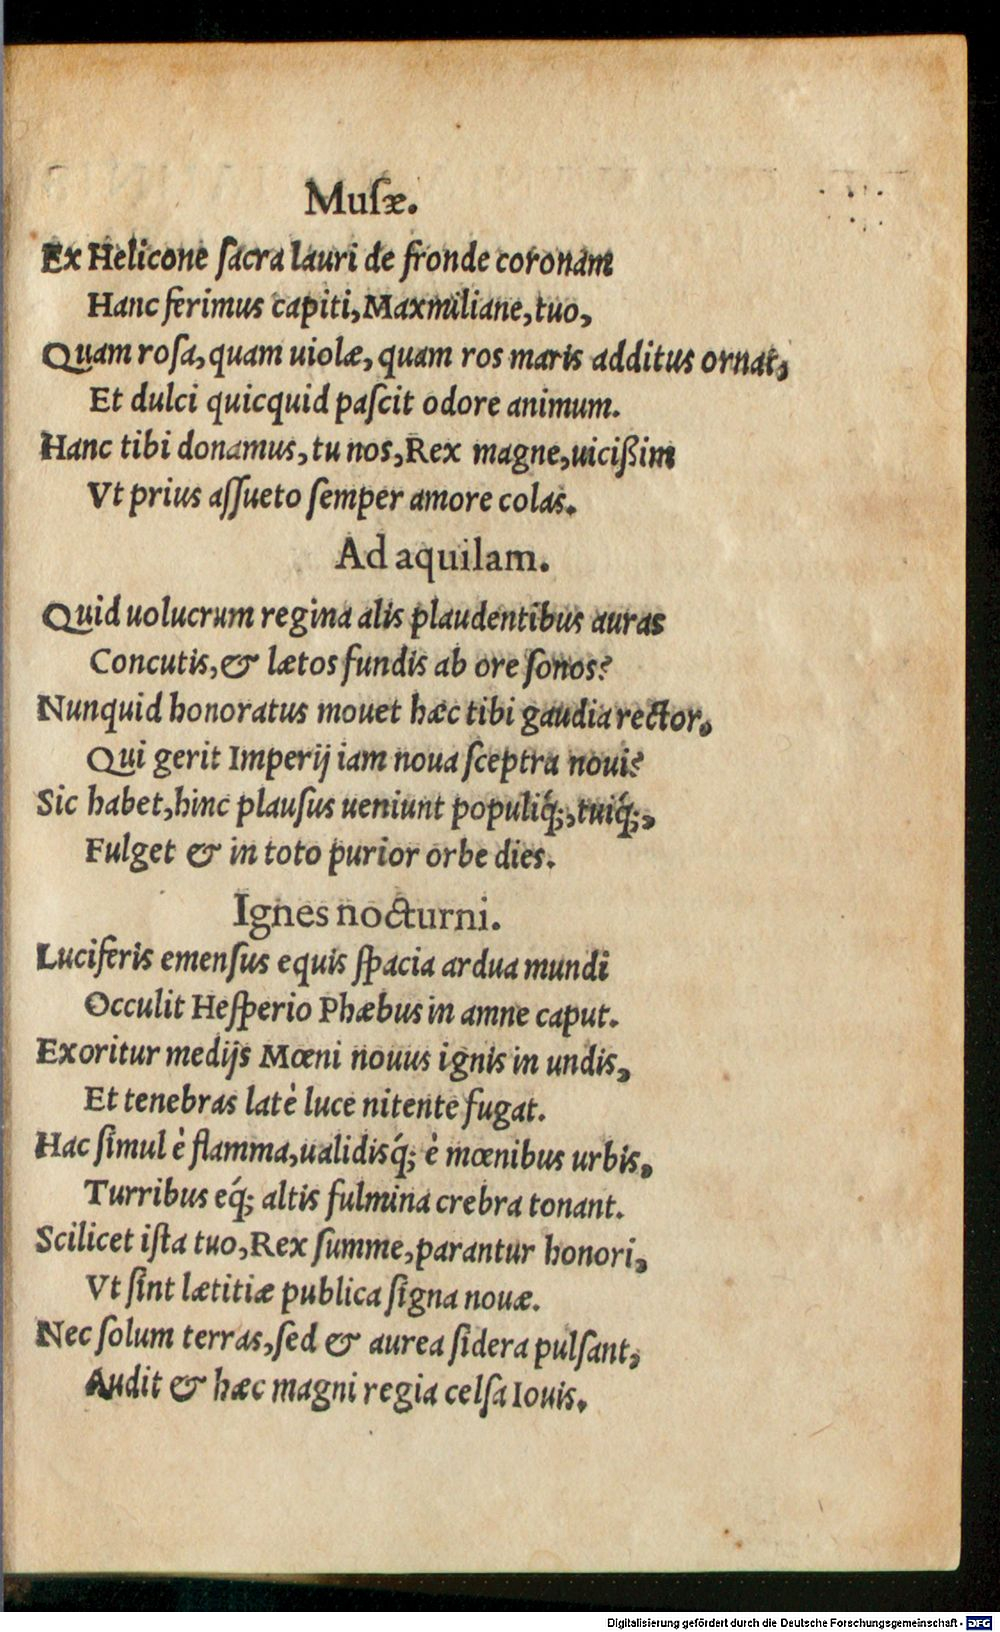 Muſæ.
Ex Helicone ſacra lauri de fronde coronam
Hanc ferimus capiti, Maxmiliane, tuo,
Quam roſa, quam uiolæ, quam ros maris additus ornat,
Et dulci quicquid paſcit odore animum.
Hanc tibi donamus, tu nos, Rex magne, uicißim
Vt prius aſſueto ſemper amore colas.
Ad aquilam.
Quid uolucrum regina alis plaudentibus auras
Concutis, & lætos fundis ab ore ſonos?
Nunquid honoratus mouet hæc tibi gaudia rector,
Qui gerit Imperij iam noua ſceptra noui?
Sic habet, hinc plauſus ueniunt populiq́;, tuiq́;,
Fulget & in toto purior orbe dies.
Ignes nocturni.
Luciferis emenſus equis ſpacia ardua mundi
Occulit Heſperio Phæbus in amne caput.
Exoritur medijs Mœni nouus ignis in undis,
Et tenebras latè luce nitente fugat.
Hac ſimul è flamma, ualidisq́; è mœnibus urbis,
Turribus eq́; altis fulmina crebra tonant.
Scilicet iſta tuo, Rex ſumme, parantur honori,
Vt ſint lætitiæ publica ſigna nouæ.
Nec ſolum terras, ſed & aurea ſidera pulſant,
Audit & hæc magni regia celſa Iouis.
Digitalisierung gefördert durch die Deutsche Forschungsgemeinschaft - DFG